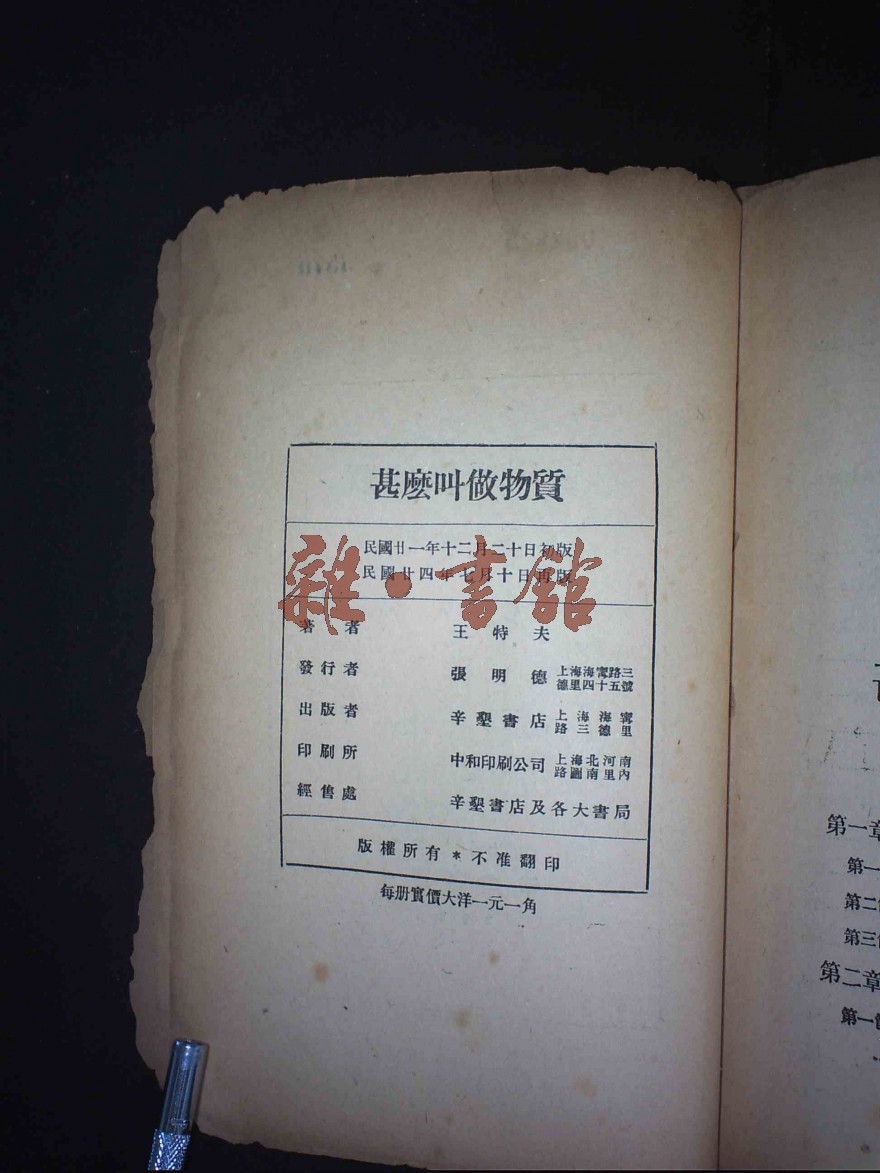 甚麽叫做物質
民國廿一年十二月二十日初版
民國廿四年七月十日再版
雜·書館
著者 王特夫
發行者 張明德 上海海甯路三德里四十五號
出版者 辛墾書店 上海海甯路三德里
印刷所 中和印刷公司 上海北河南路圖南里內
經售處 辛墾書店及各大書局
版權所有*不准翻印
每册實價大洋一元一角
第一章
第一
第二
第三
第二章
第一